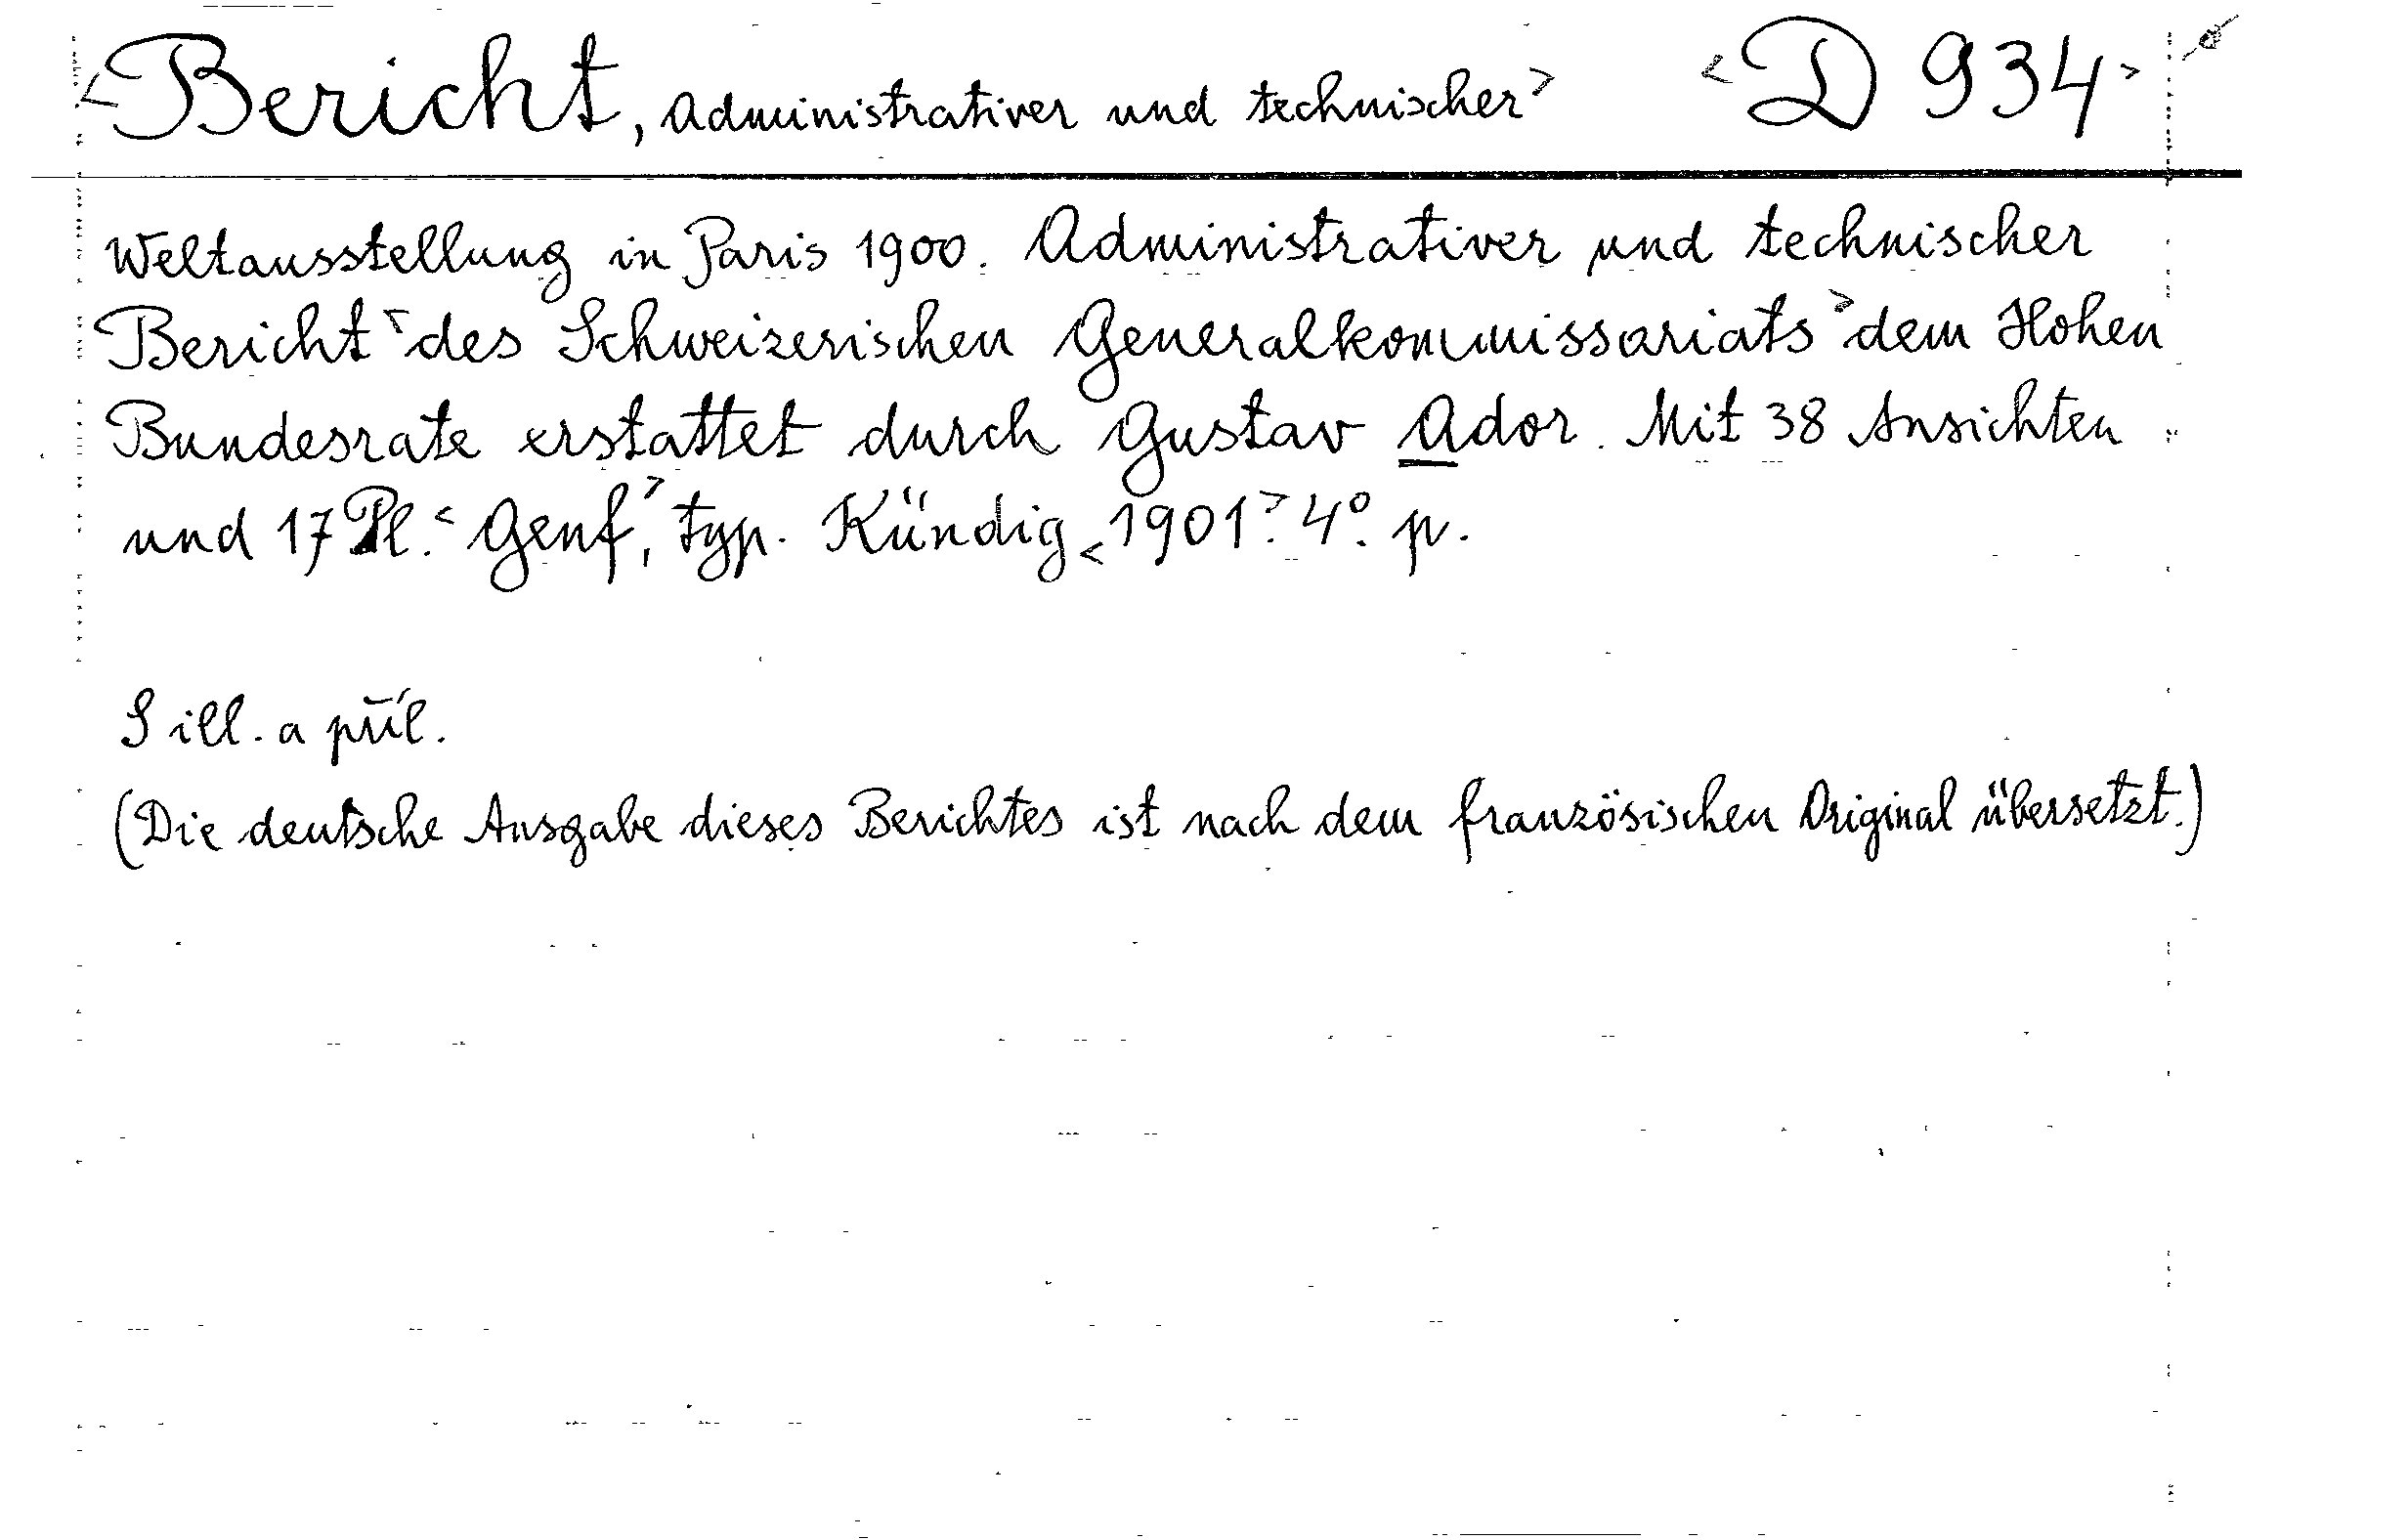 <Bericht, Administrativer und technischer> <D 934>
Weltausstellung in Paris 1900. Administrativer und technischer
Bericht <des Schweizerischen Generalkommissariats> dem Hohen
Bundesrate erstattet durch Gustav Ador. Mit 38 Ansichten
und 17 Pl. <Genf,> typ. Kündig <1901>. 4°. p.
S ill. a příl.
(Die deutsche Ausgabe dieses Berichtes ist nach dem französischen Original übersetzt.)